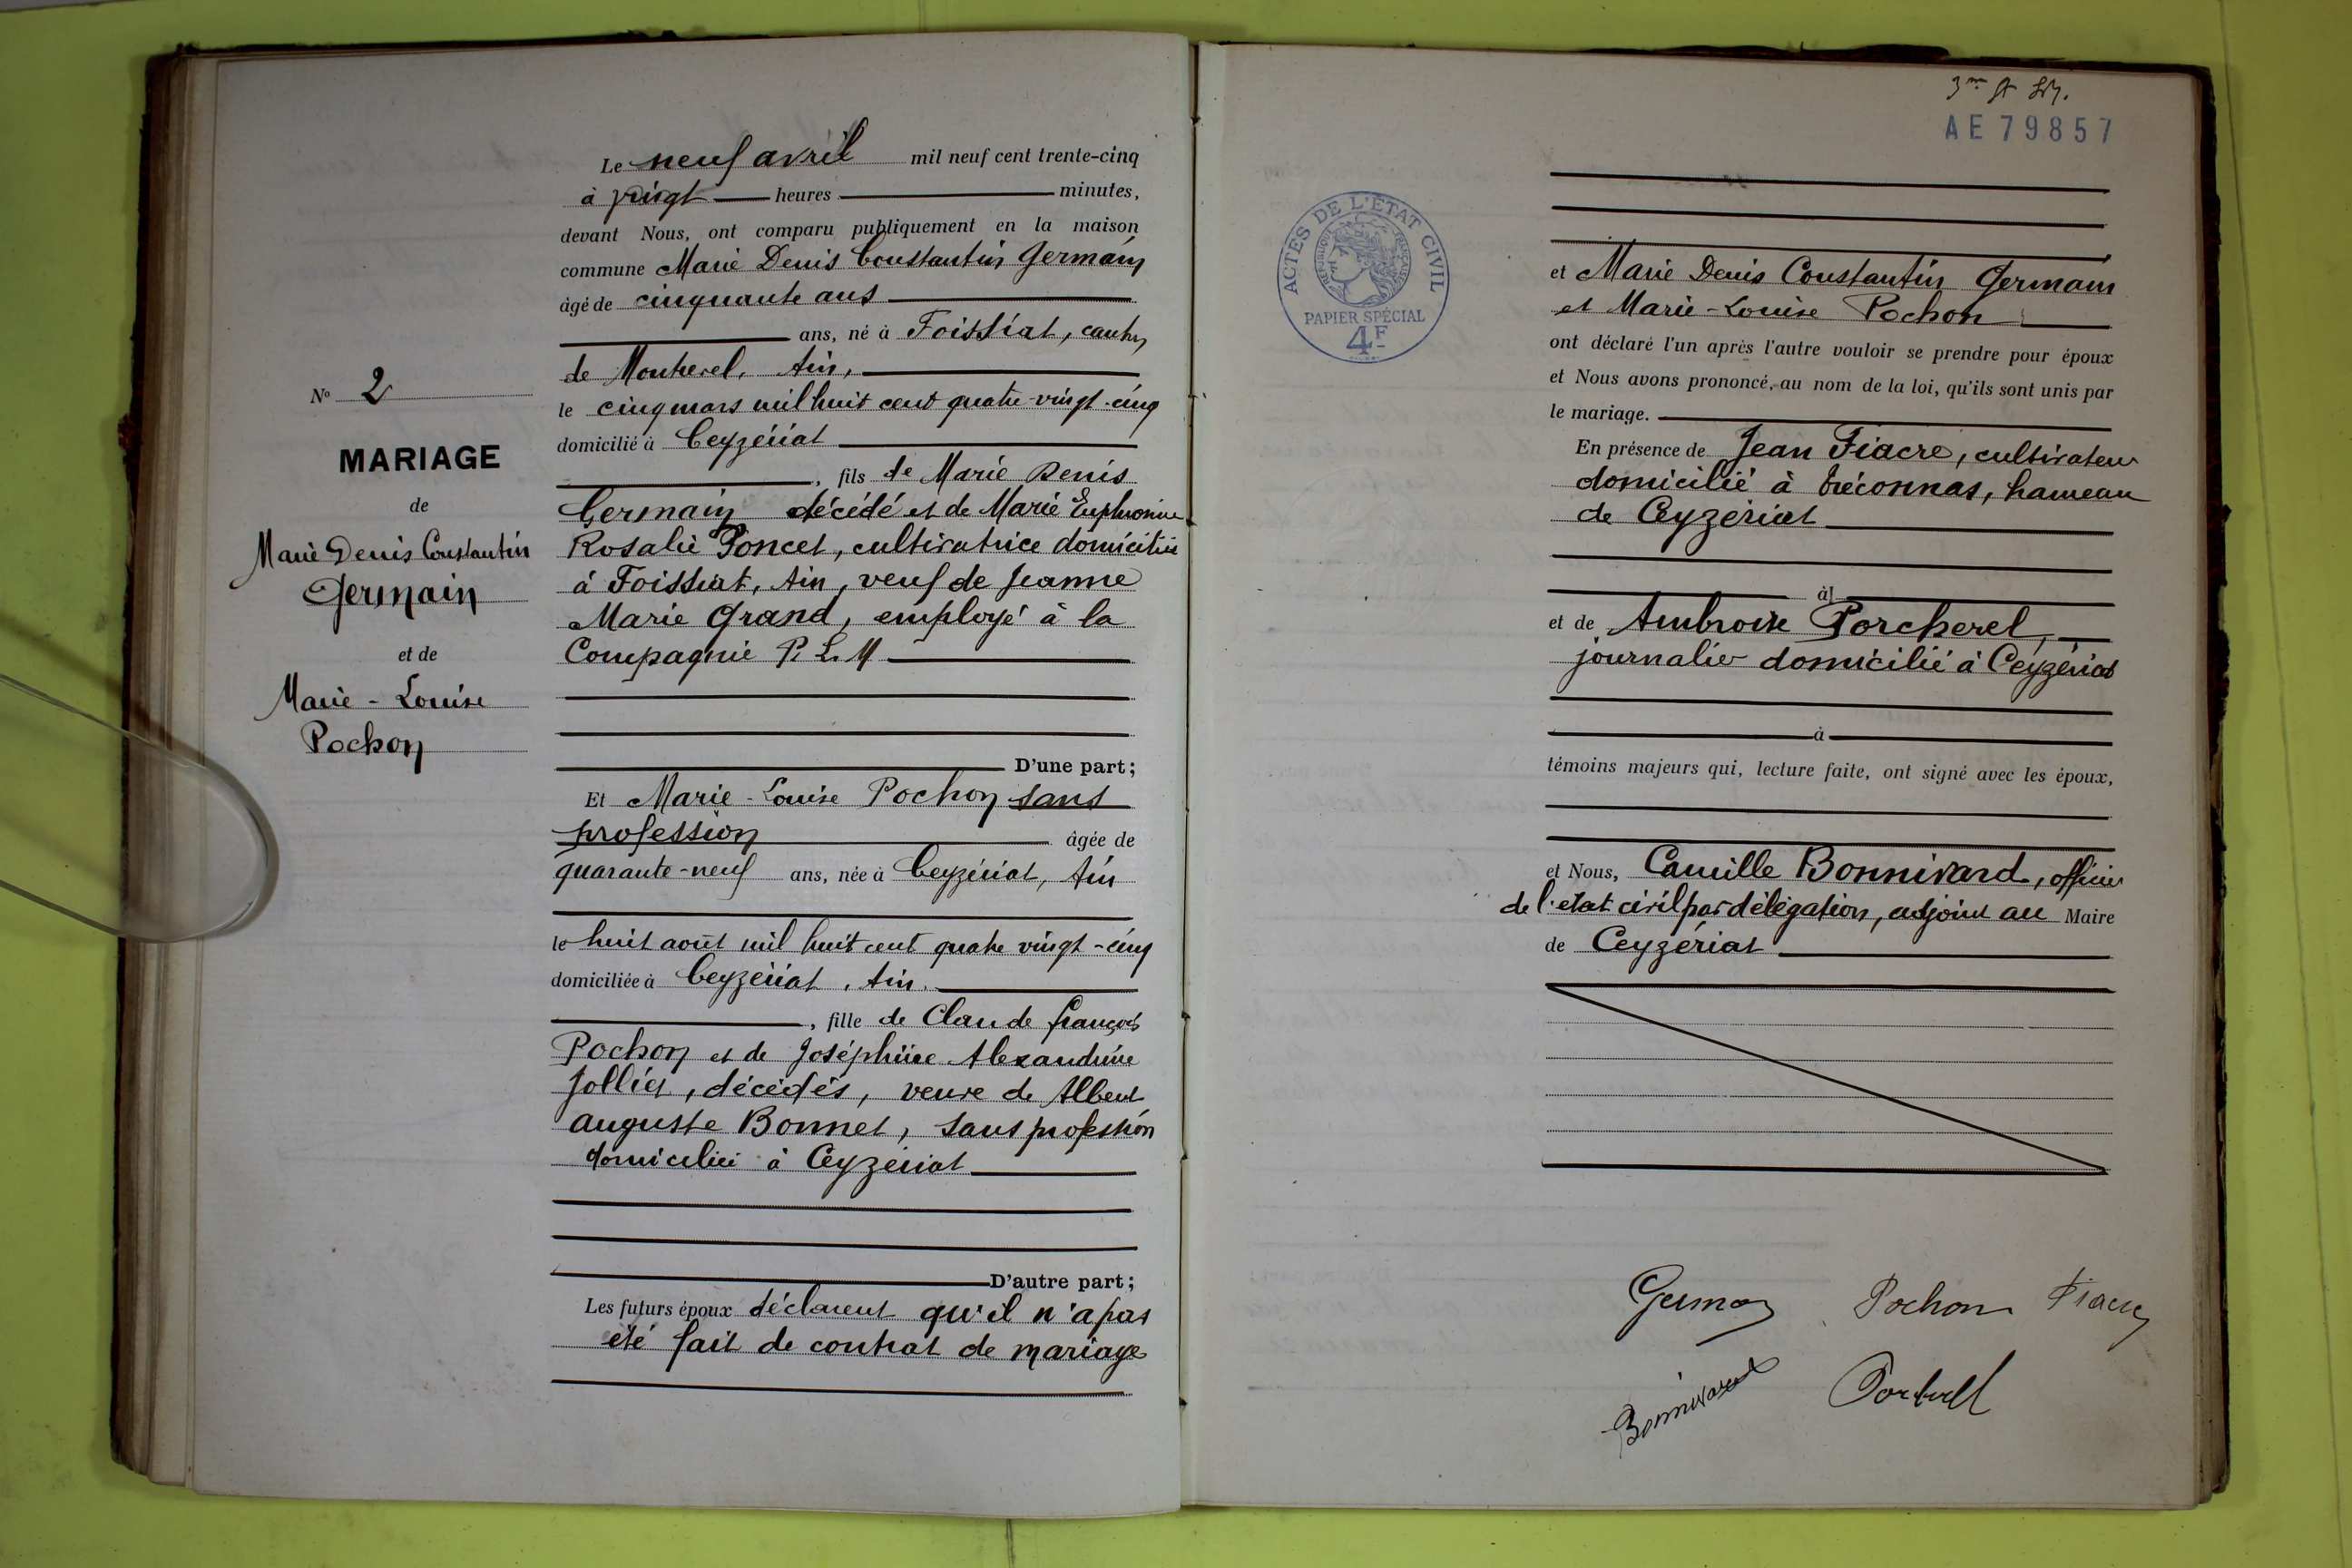 Le neuf avril mil neuf cent trente-cinq
à vingt heures minutes,
devant Nous, ont comparu publiquement en la maison
commune Marie Denis Constantin Germain
âgé de cinquante ans
ans, né à Foissiat, canton
de Montrevel, Ain,
le cinq mars mil huit cent quatre-vingt-cinq
domicilié à Ceyzériat
, fils de Marie Denis
Germain décédé et de Marie Euphrosine
Rosalie Poncet, cultivatrice domiciliée
à Foissiat, Ain, veuf de Jeanne
Marie Grand, employé à la
Compagnie P. L. M
D'une part;
Et Marie-Louise Pochon sans
profession âgée de
quarante-neuf ans, née à Ceyzériat, Ain
le huit août mil huit cent quatre vingt-cinq
domiciliée à Ceyzériat, Ain.
, fille de Claude François
Pochon et de Joséphine Alexandrine
Jollier, décédés, veuve de Albert
Auguste Bonnet, sans profession
domiciliée à Ceyzériat
D'autre part;
Les futurs époux déclarent qu'il n'a pas
été fait de contrat de mariage
N° 2
MARIAGE
de
Marie Denis Constantin
Germain
et de
Marie-Louise
Pochon
3me
AE 79857
ACTES DE L'ÉTAT CIVIL
RÉPUBLIQUE FRANÇAISE
PAPIER SPÉCIAL
4F
et Marie Denis Constantin Germain
et Marie-Louise Pochon
ont déclaré l'un après l'autre vouloir se prendre pour époux
et Nous avons prononcé, au nom de la loi, qu'ils sont unis par
le mariage.
En présence de Jean Fiacre, cultivateur
domicilié à Tréconnas, hameau
de Ceyzériat
à
et de Ambroise Porcherel,
journalier domicilié à Ceyzériat
à
témoins majeurs qui, lecture faite, ont signé avec les époux,
et Nous, Camille Bonnivard, officier
de l'état civil par délégation, adjoint au Maire
de Ceyzériat
Germain Pochon Fiacre
Bonnivard Porcherel